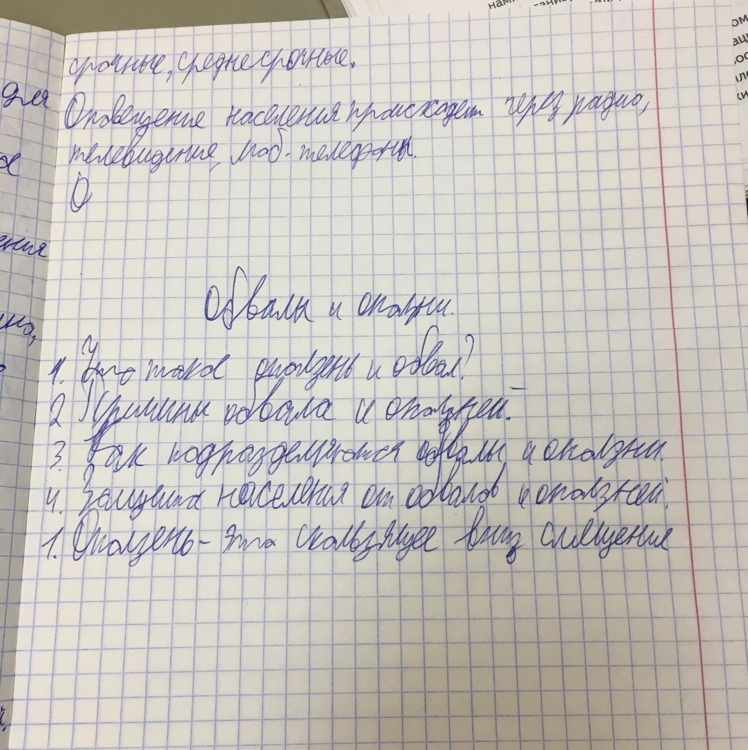 срочные, среднесрочные.
Оповещение населения происходет через радио,
телевидение, моб. телефоны.
О
Обвалы и оползни.
1. Что такое оползень и обвал?
2 Причины обвала и оползней.
3. Как подразделяются обвалы и оползни.
4. Защита населения от обвалов и оползней.
1. Оползень - это скользящее вниз смещение
для
ения